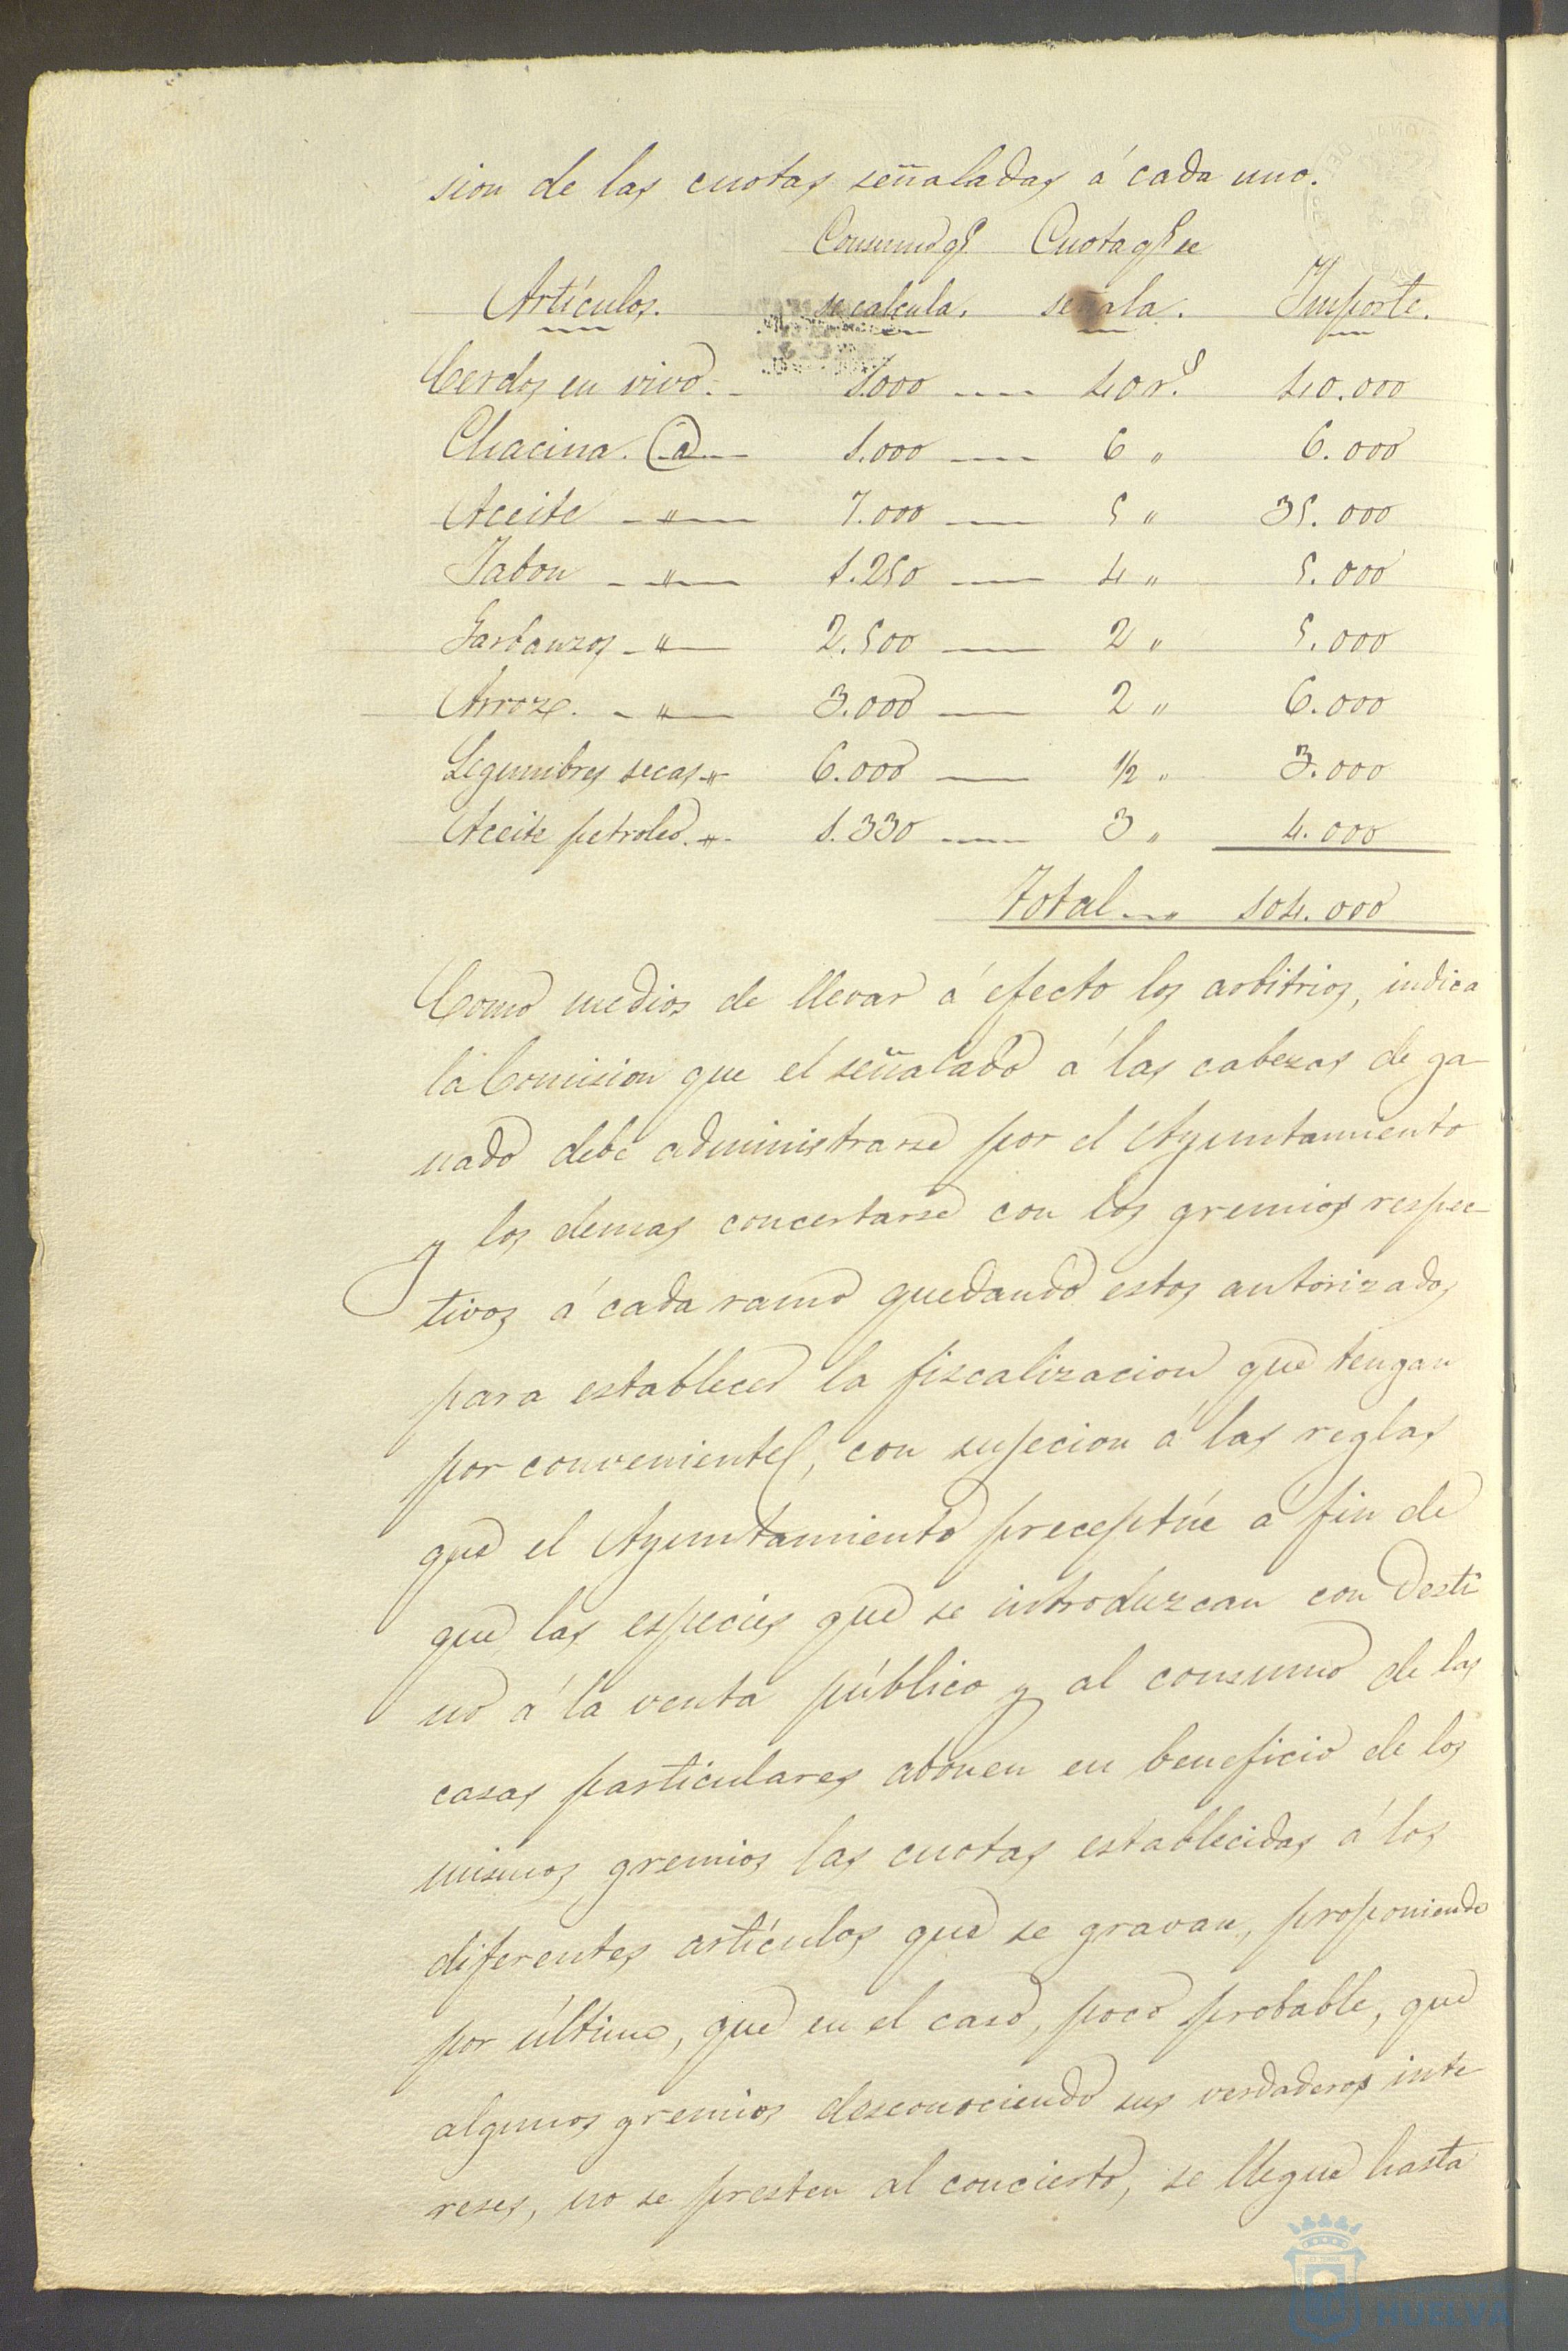 sion de las cuotas señaladas á cada uno.
Consumo qe. Cuota qe se
Artículos. se calcula. señala. Importe.
Cerdos en vivo. 1.000 40 rs. 40.000
Chacina. @ 1.000 6 " 6.000
Aceite " 7.000 5 " 35.000
Jabon " 1.250 4 " 5.000
Garbanzos " 2.500 2 " 5.000
Arroz. " 3.000 2 " 6.000
Legumbres secas " 6.000 1/2 " 3.000
Aceite petroleo. " 1.330 3 " 4.000
Total " 104.000
Como medios de llevar á efecto los arbitrios, indica
la Comision que el señalado á las cabezas de ga-
nado debe administrarse por el Ayuntamiento
y los demas concertarse con los gremios respec-
tivos á cada ramo quedando estos autorizados
para establecer la fiscalizacion que tengan
por conveniente, con sujecion á las reglas
que el Ayuntamiento preceptúe á fin de
que las especies que se introduzcan con desti
no á la venta público y al consumo de las
casas particulares abonen en beneficio de los
mismos gremios las cuotas establecidas á los
diferentes artículos que se gravan, proponiendo
por último, que en el caso, poco probable, que
algunos gremios desconociendo sus verdaderos inte
reses, no se presten al concierto, se llegue hasta
HUELVA